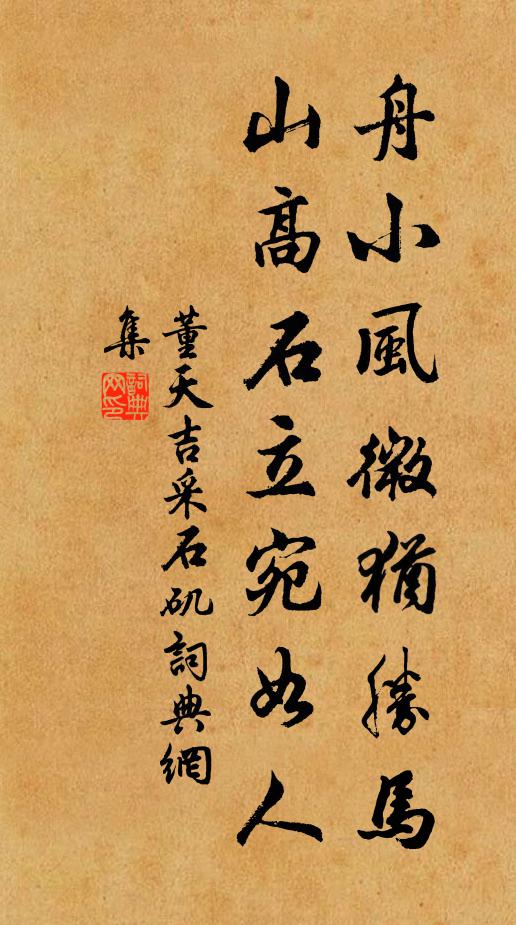 舟小風微猶勝馬
山高石立宛如人
董天吉采石矶詞典網
集
詞典
网印